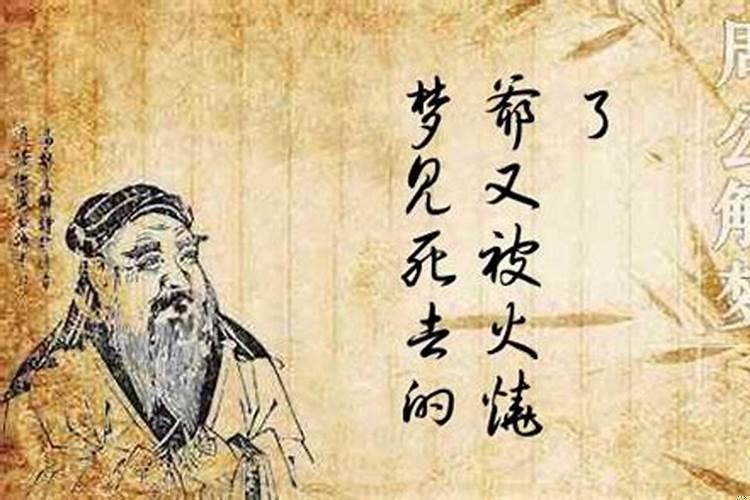 梦见死去的
爺又被火烧
了
周公解梦